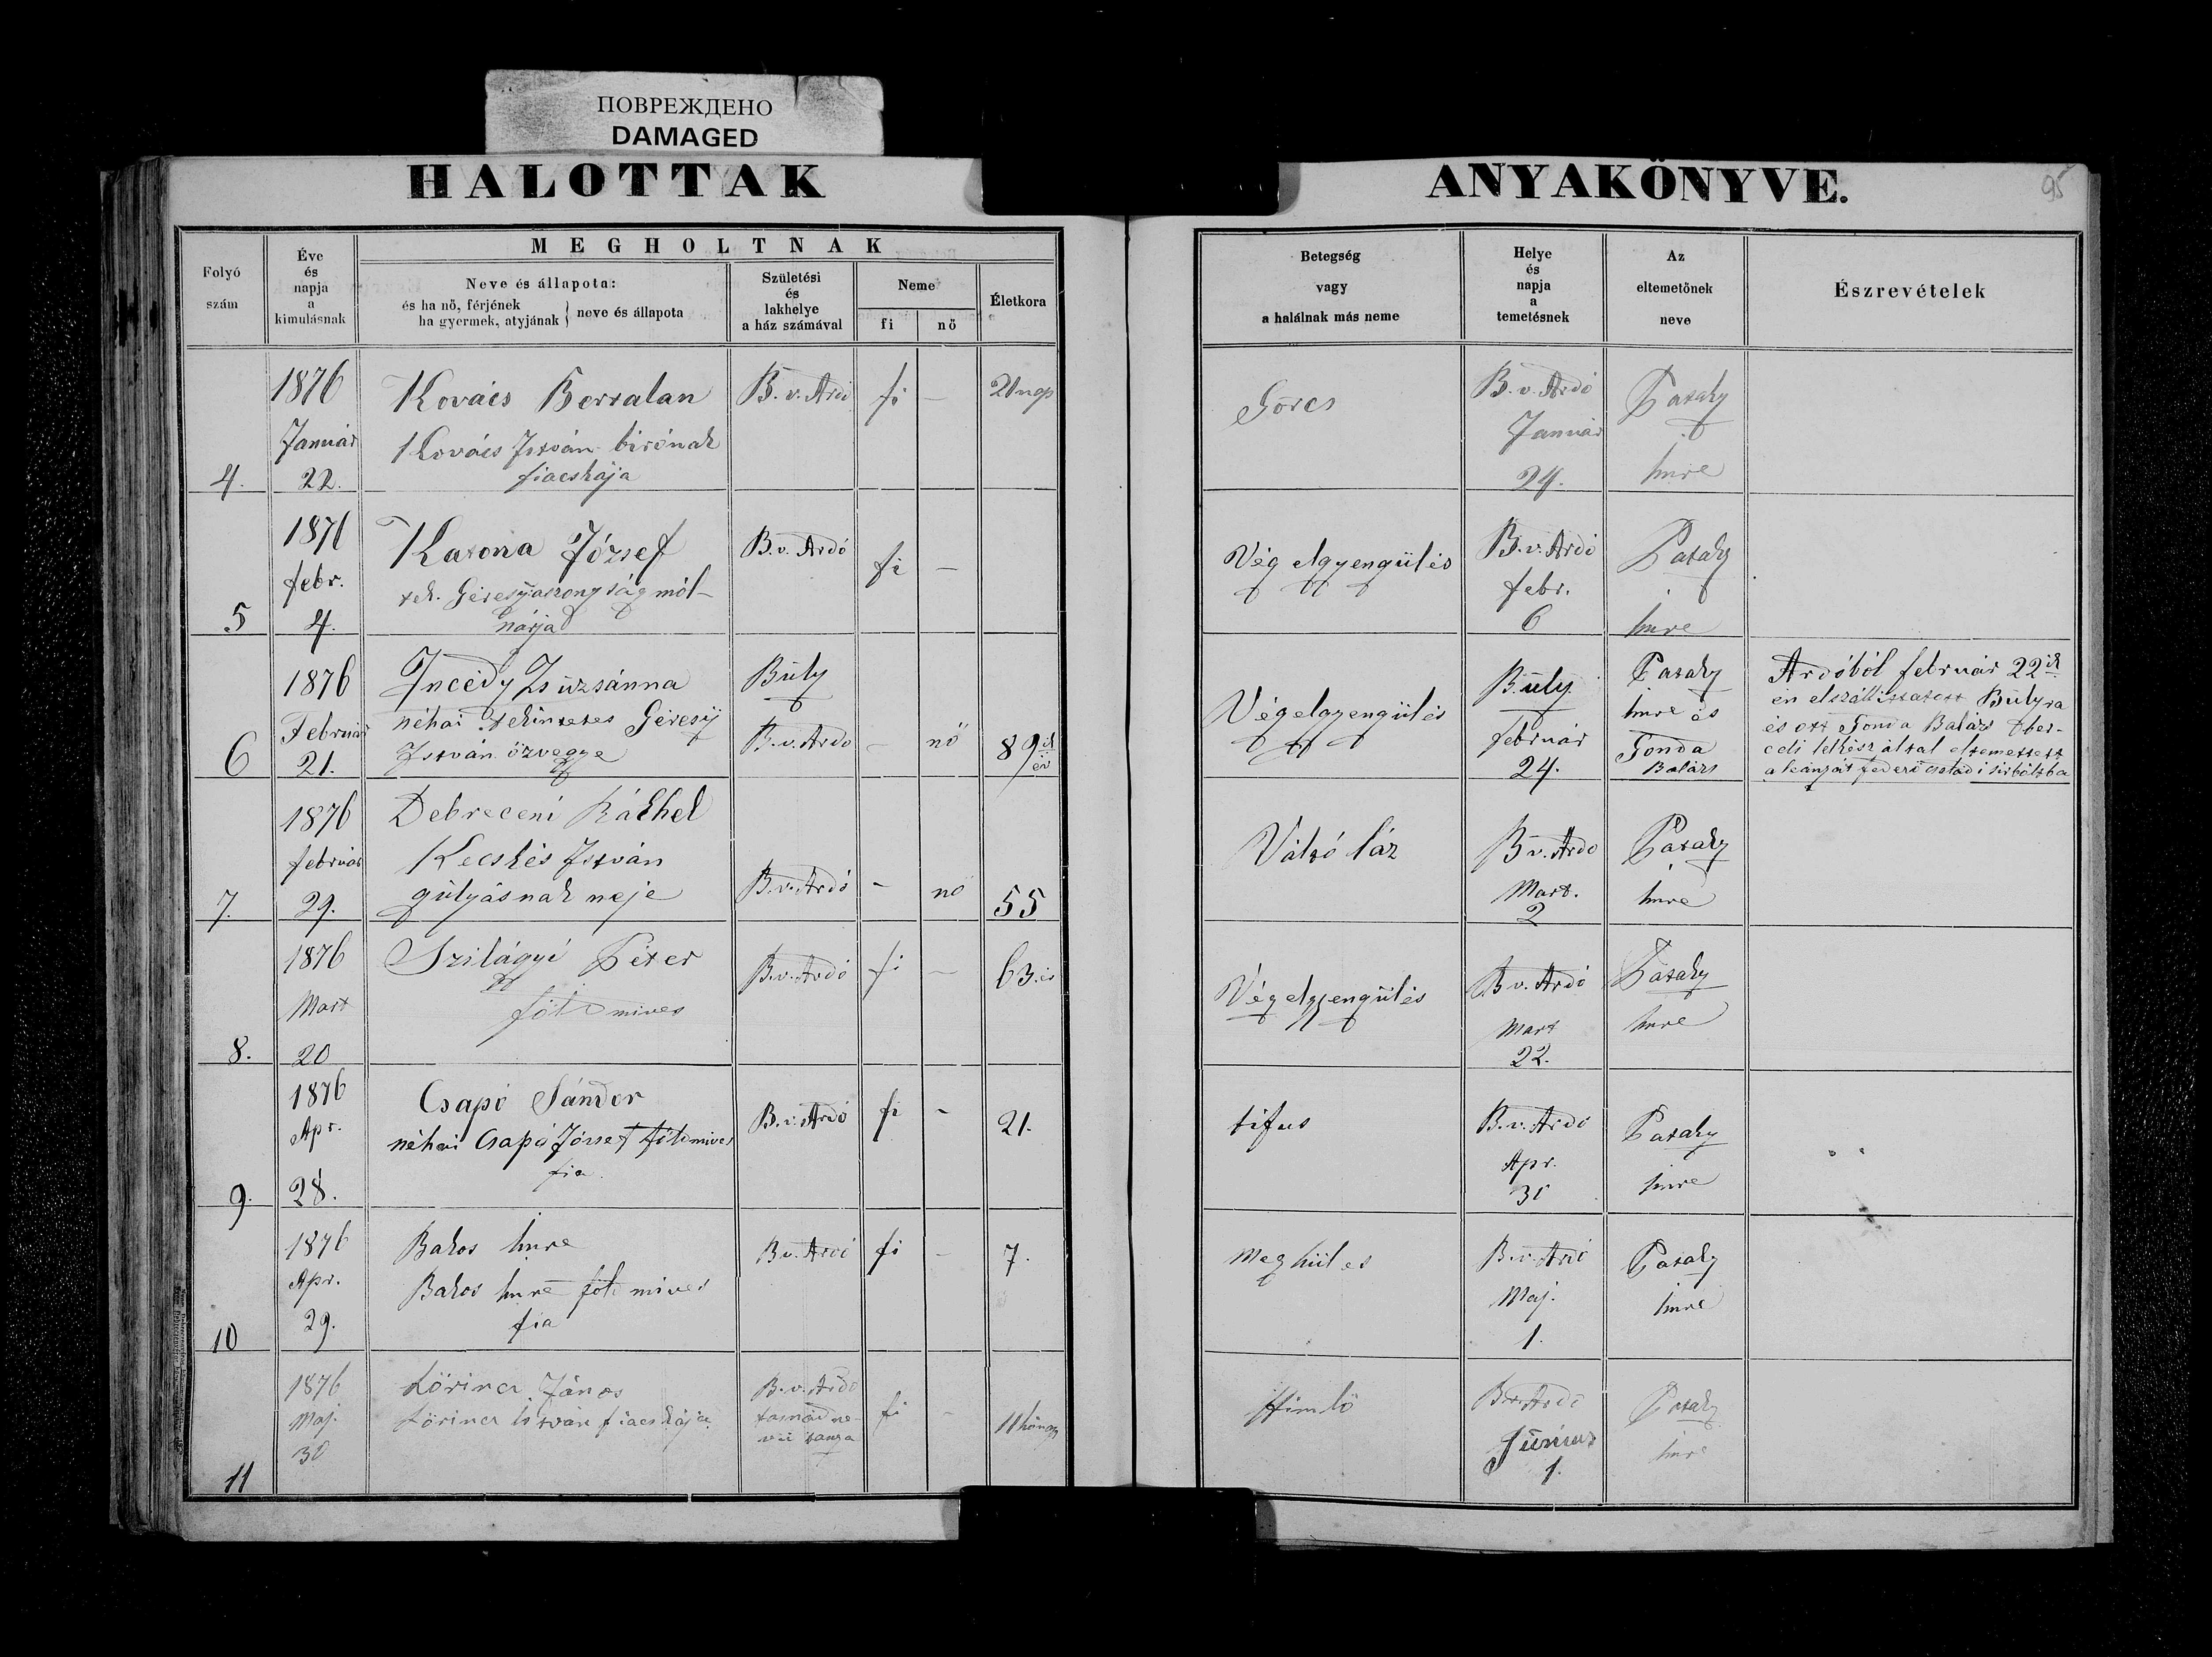 ПОВРЕЖДЕНО
DAMAGED
HALOTTAK ANYAKÖNYVE.
95
Folyó
szám
Éve
és
napja
a
kimulásnak
MEGHOLTNAK
Neve és állapota:
és ha nő, férjének
ha gyermek, atyjának } neve és állapota
Születési
és
lakhelye
a ház számával
Neme
fi
nő
Életkora
Betegség
vagy
a halálnak más neme
Helye
és
napja
a
temetésnek
Az
eltemetőnek
neve
Észrevételek
4.
1876
Január
22.
Kovács Bertalan
Kovács István birónak
fiacskája
B. v. Ardó
fi
–
21 nap
Görcs
B. v. Ardó
Január
24.
Pataky
Imre
5
1876
febr.
4.
Katona József
tek. Géresy asszonyság mól-
nárja
B. v. Ardó
fi
–
Vég elgyengülés
B. v. Ardó
febr.
6
Pataky
Imre
6
1876
Február
21.
Incédy Zsuzsánna
néhai Tekintetes Géresy
István özvegye
Buly
B. v. Ardo
–
nő
89 ik
év
Végelgyengülés
Buly
február
24.
Pataky
Imre és
Gonda
Balázs
Ardóból február 22ik
én elszállittatott Bulyra
és ott Gonda Balázs
lelkész által eltemettett
a családi sirboltba
7.
1876
február
29.
Debreceni Ráchel
Kecskés István
gulyásnak neje
B. v. Ardó
–
nő
55
Váltó láz
B v. Ardo
Mart.
2
Pataky
Imre
8.
1876
Mart
20
Szilágyi Péter
földmives
B. v. Ardó
fi
–
63. év
Végelgyengülés
B v. Ardó
Mart
22.
Pataky
Imre
9.
1876
Apr.
28.
Csapó Sándor
néhai Csapó József földmives
fia
B. v. Ardó
fi
–
21.
tifus
B. v. Ardó
Apr.
30
Pataky
Imre
10
1876
Apr.
29.
Bakos Imre
Bakos Imre földmives
fia
B v. Ardó
fi
–
7.
Meghülés
B. v. Ardó
Maj.
1.
Pataky
Imre
11
1876
Maj.
30
Lőrincz János
Lőrincz István fiacskája
B. v. Ardó
ne-
vü tanya
fi
–
11 hónap
Himlő
B. v. Ardó
Június
1.
Pataky
Imre